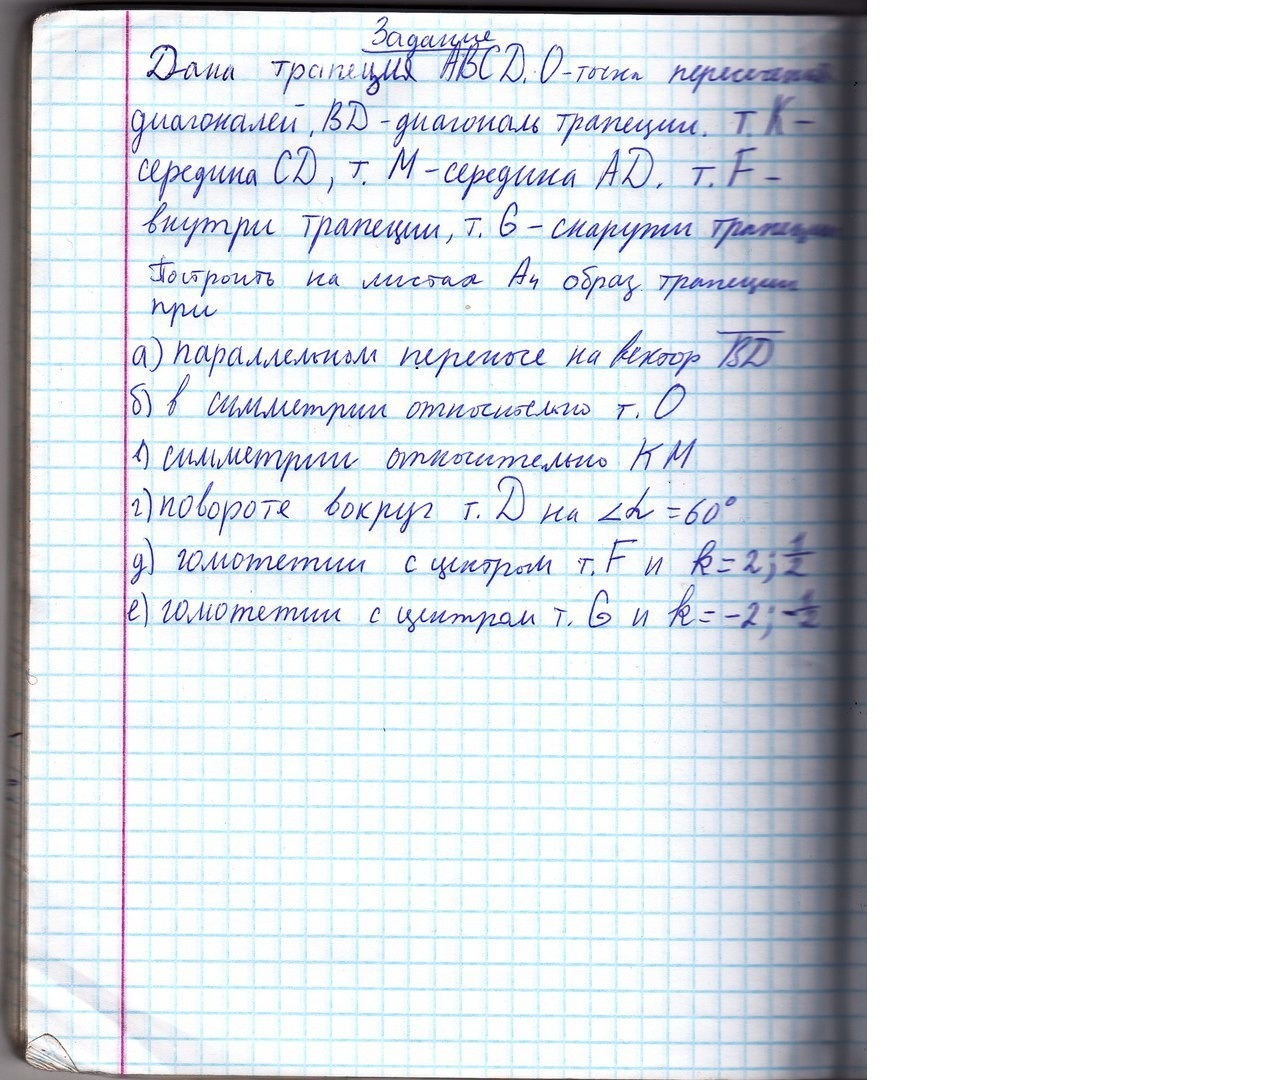 Задание
Дана трапеция ABCD. O-точка пересечения
диагоналей, BD-диагональ трапеции. т. K-
середина CD, т. M-середина AD. т. F-
внутри трапеции, т. G-снаружи трапеции
Построить на листах A4 образ трапеции
при
а) параллельном переносе на вектор BD
б) в симметрии относительно т. O
в) симметрии относительно KM
г) повороте вокруг т. D на ∠α=60°
д) гомотетии с центром т. F и k=2; 1/2
е) гомотетии с центром т. G и k=-2; -1/2